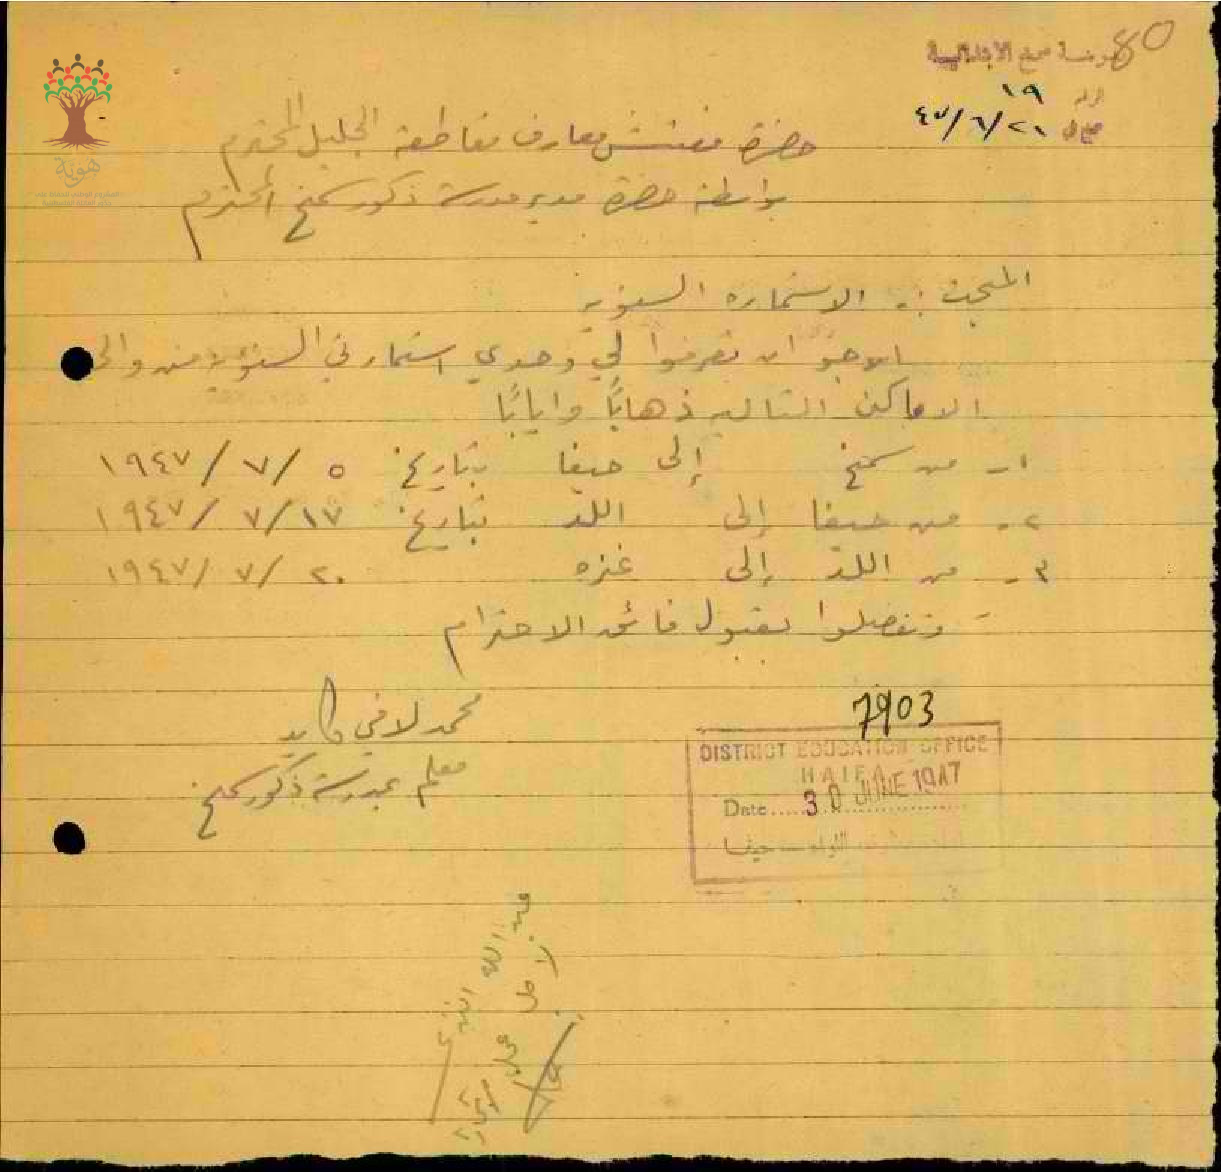 80
مدرسة سمخ الابتدائية
١٩
٤٧/٦/٢٨
هوية
حضرة مفتش معارف مقاطعة الجليل المحترم
بواسطة حضرة مدير مدرسة ذكور سمخ المحترم
المبحث :- الاستماره السنويه
ارجو ان تصرفوا لي وحدي استمارتي السنويه من والى
الاماكن التاليه ذهابًا وايابًا
١- من سمخ إلى حيفا بتاريخ ٥ /٧ /١٩٤٧
٢- من حيفا إلى اللد بتاريخ ١٧/٧ /١٩٤٧
٣- من اللد إلى غزه ٢٠ /٧ /١٩٤٧
وتفضلوا بقبول فائق الاحترام
محمد لافي كايد
معلم بمدرسة ذكور سمخ
7903
DISTRICT EDUCATION OFFICE
HAIFA
Date 30 JUNE 1947
اللواء حيفا